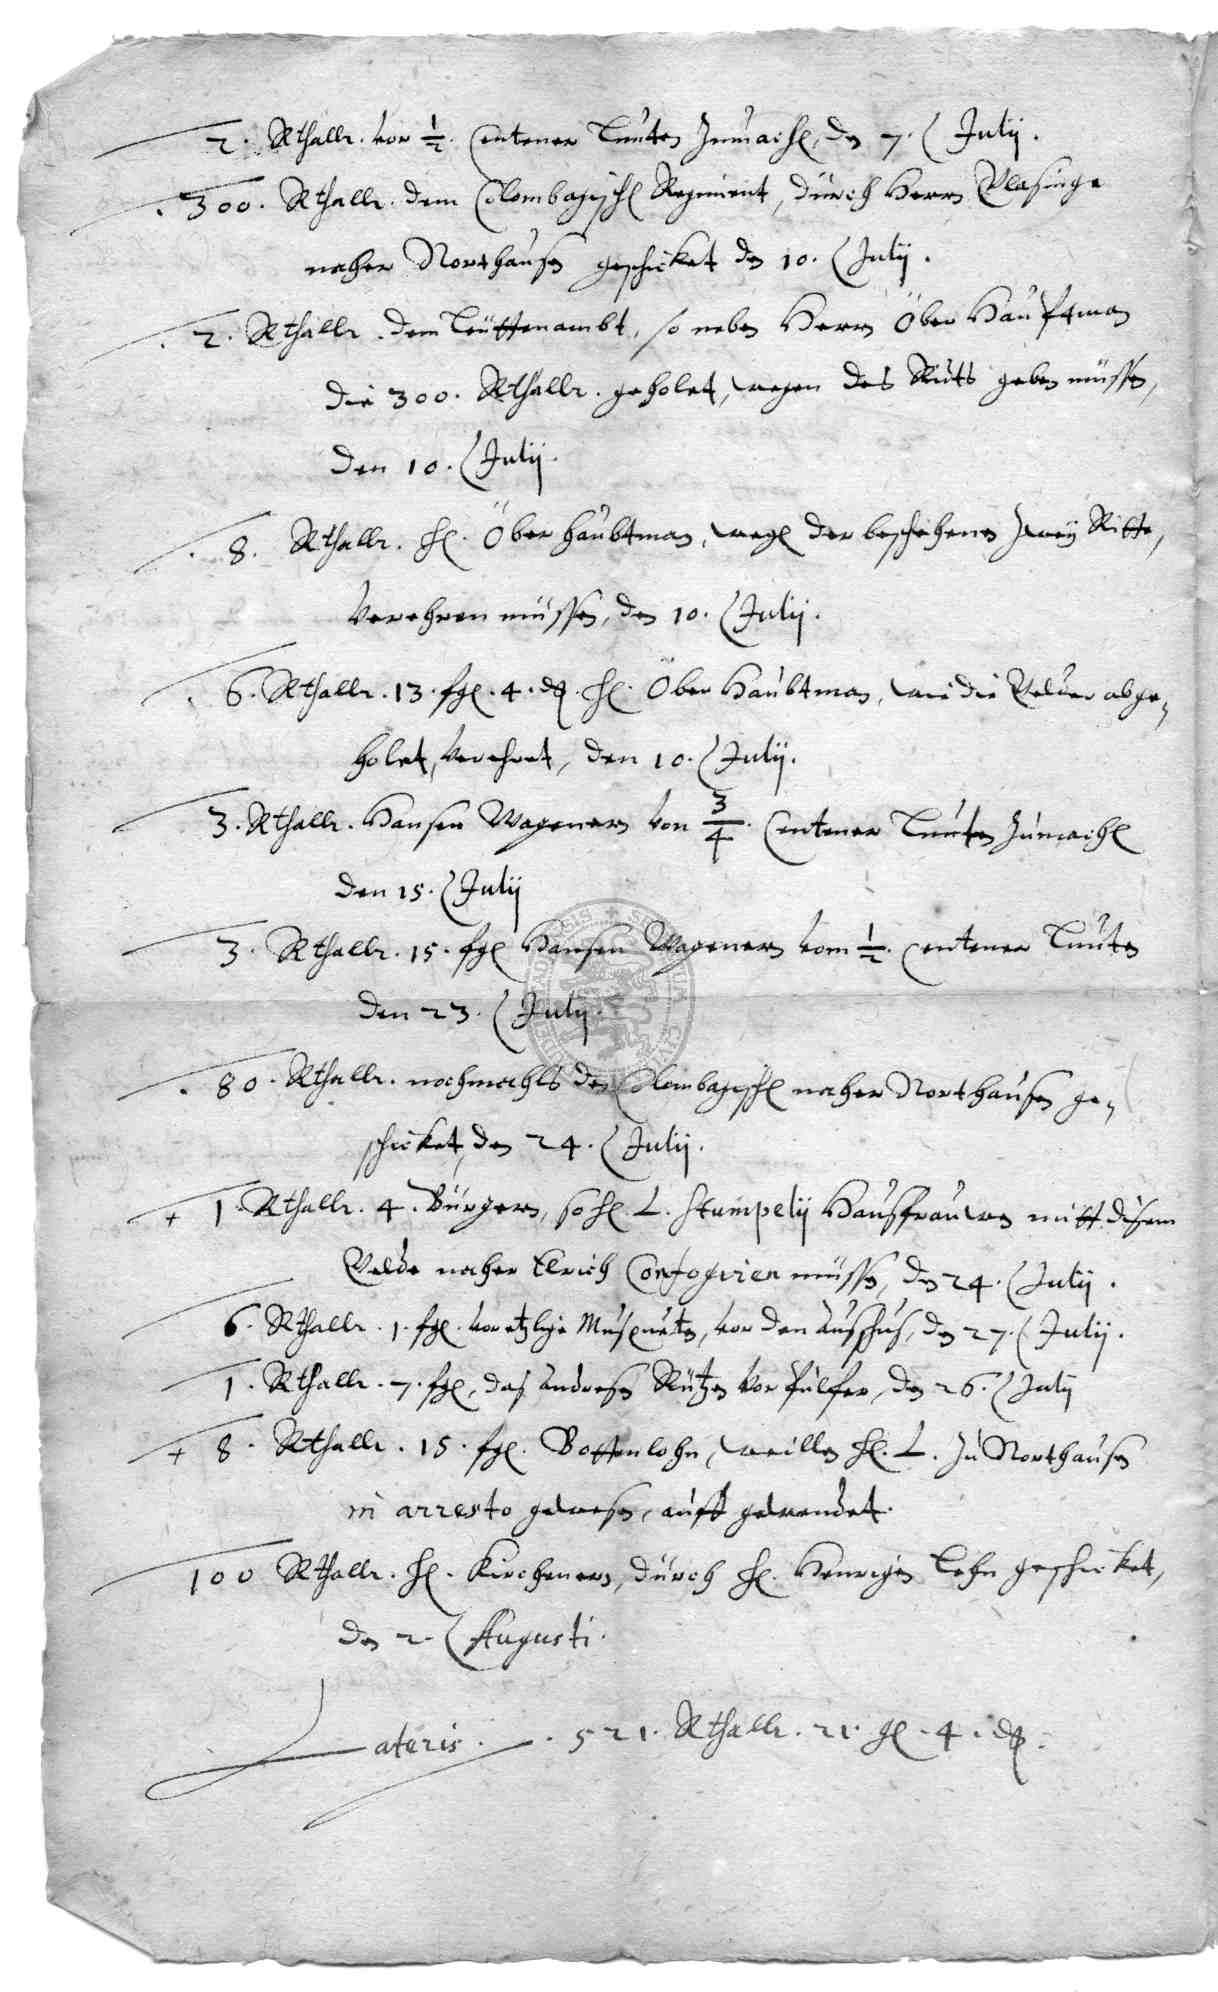 2. Rthalr. vor ½. Centener Lunten Zumachen, den 7. Julij.
300. Rthalr. dem Colombagischen Regiment, durch Herrn
naher Northausen geschicket den 10. Julij.
2. Rthalr. dem Leüttenambt, so neben Herrn Ober Hauptman
die 300. Rthalr. geholet, wegen des Ritts geben müssen,
den 10. Julij.
8. Rthalr. H. Ober Haubtman, wegen der beschehenen zweij Ritte,
verehren müssen, den 10. Julij.
6. Rthalr. 13. sgl. 4. d. H. Ober Haubtman, wie die Gelder abge,
holet, verehret, den 10. Julij.
3. Rthalr. Hansen Wagenern von ¾. Centener Lunten Zumachen
den 15. Julij
3. Rthalr. 15. sgl Hansen Wagenern vom ½. Centener Lunten
den 23. Julij.
80. Rthalr. nochmahls den Colombagischen naher Northausen ge,
schicket, den 24. Julij.
+ 1. Rthalr. 4. Bürgern, so H. L. Stumpelij Hausfrauwen mitt disem
Gelde naher Elrich müssen, den 24. Julij.
6. Rthalr. 1. sgl. vor etzliche Musqueten, vor den Ausschus, den 27. Julij.
1. Rthalr. 7. sgl, das Andresen vor Pulfer, den 26. Julij
+ 8. Rthalr. 15. sgl. Bottenlohn, weillen H. L. zu Northausen
in arresto gewesen, aufft gewendet.
100 Rthalr. H. Kirchenern, durch H. Henrigen Lehn geschicket,
den 2. Augusti.
Lateris. 521. Rthalr. 21. gl. 4. d.